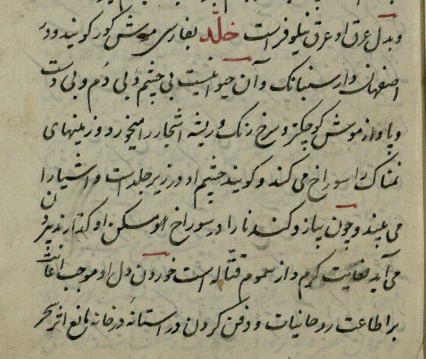 و بدل عرق او عرق نیلوفر است خلد بفارسی موش کور کویند و در
اصفهان و آن حیوانیست بی چشم و بی دم و بی دست
و پا و از موش کوچکتر و سرخ رنک و ریشه اشجار را میخورد و زمینهای
نمناک را سوراخ می کند و کویند چشم او در زیر جلد است و اشیا را
می بیند و چون پیاز و کندنا را در سوراخ و مسکن او کذارند بیرون
می آید بغایت کرم و از سموم قتاله است خوردن دل او موجب
بر اطاعت روحانیات و دفن کردن در استانه در خانه مانع اثر سحر